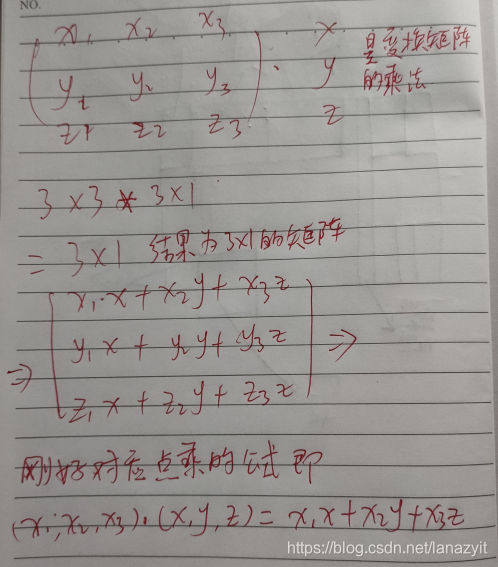 NO.
x₁ x₂ x₃ · x 是变换矩阵
y₁ y₂ y₃ y 的乘法
z₁ z₂ z₃ z
3×3 * 3×1
= 3×1 结果为3×1的矩阵
x₁·x + x₂y + x₃z
⇒ y₁x + y₂y + y₃z ⇒
z₁x + z₂y + z₃z
刚好对应点乘的公式 即
(x₁,x₂,x₃)·(x,y,z) = x₁x+x₂y+x₃z
https://blog.csdn.net/lanazyit